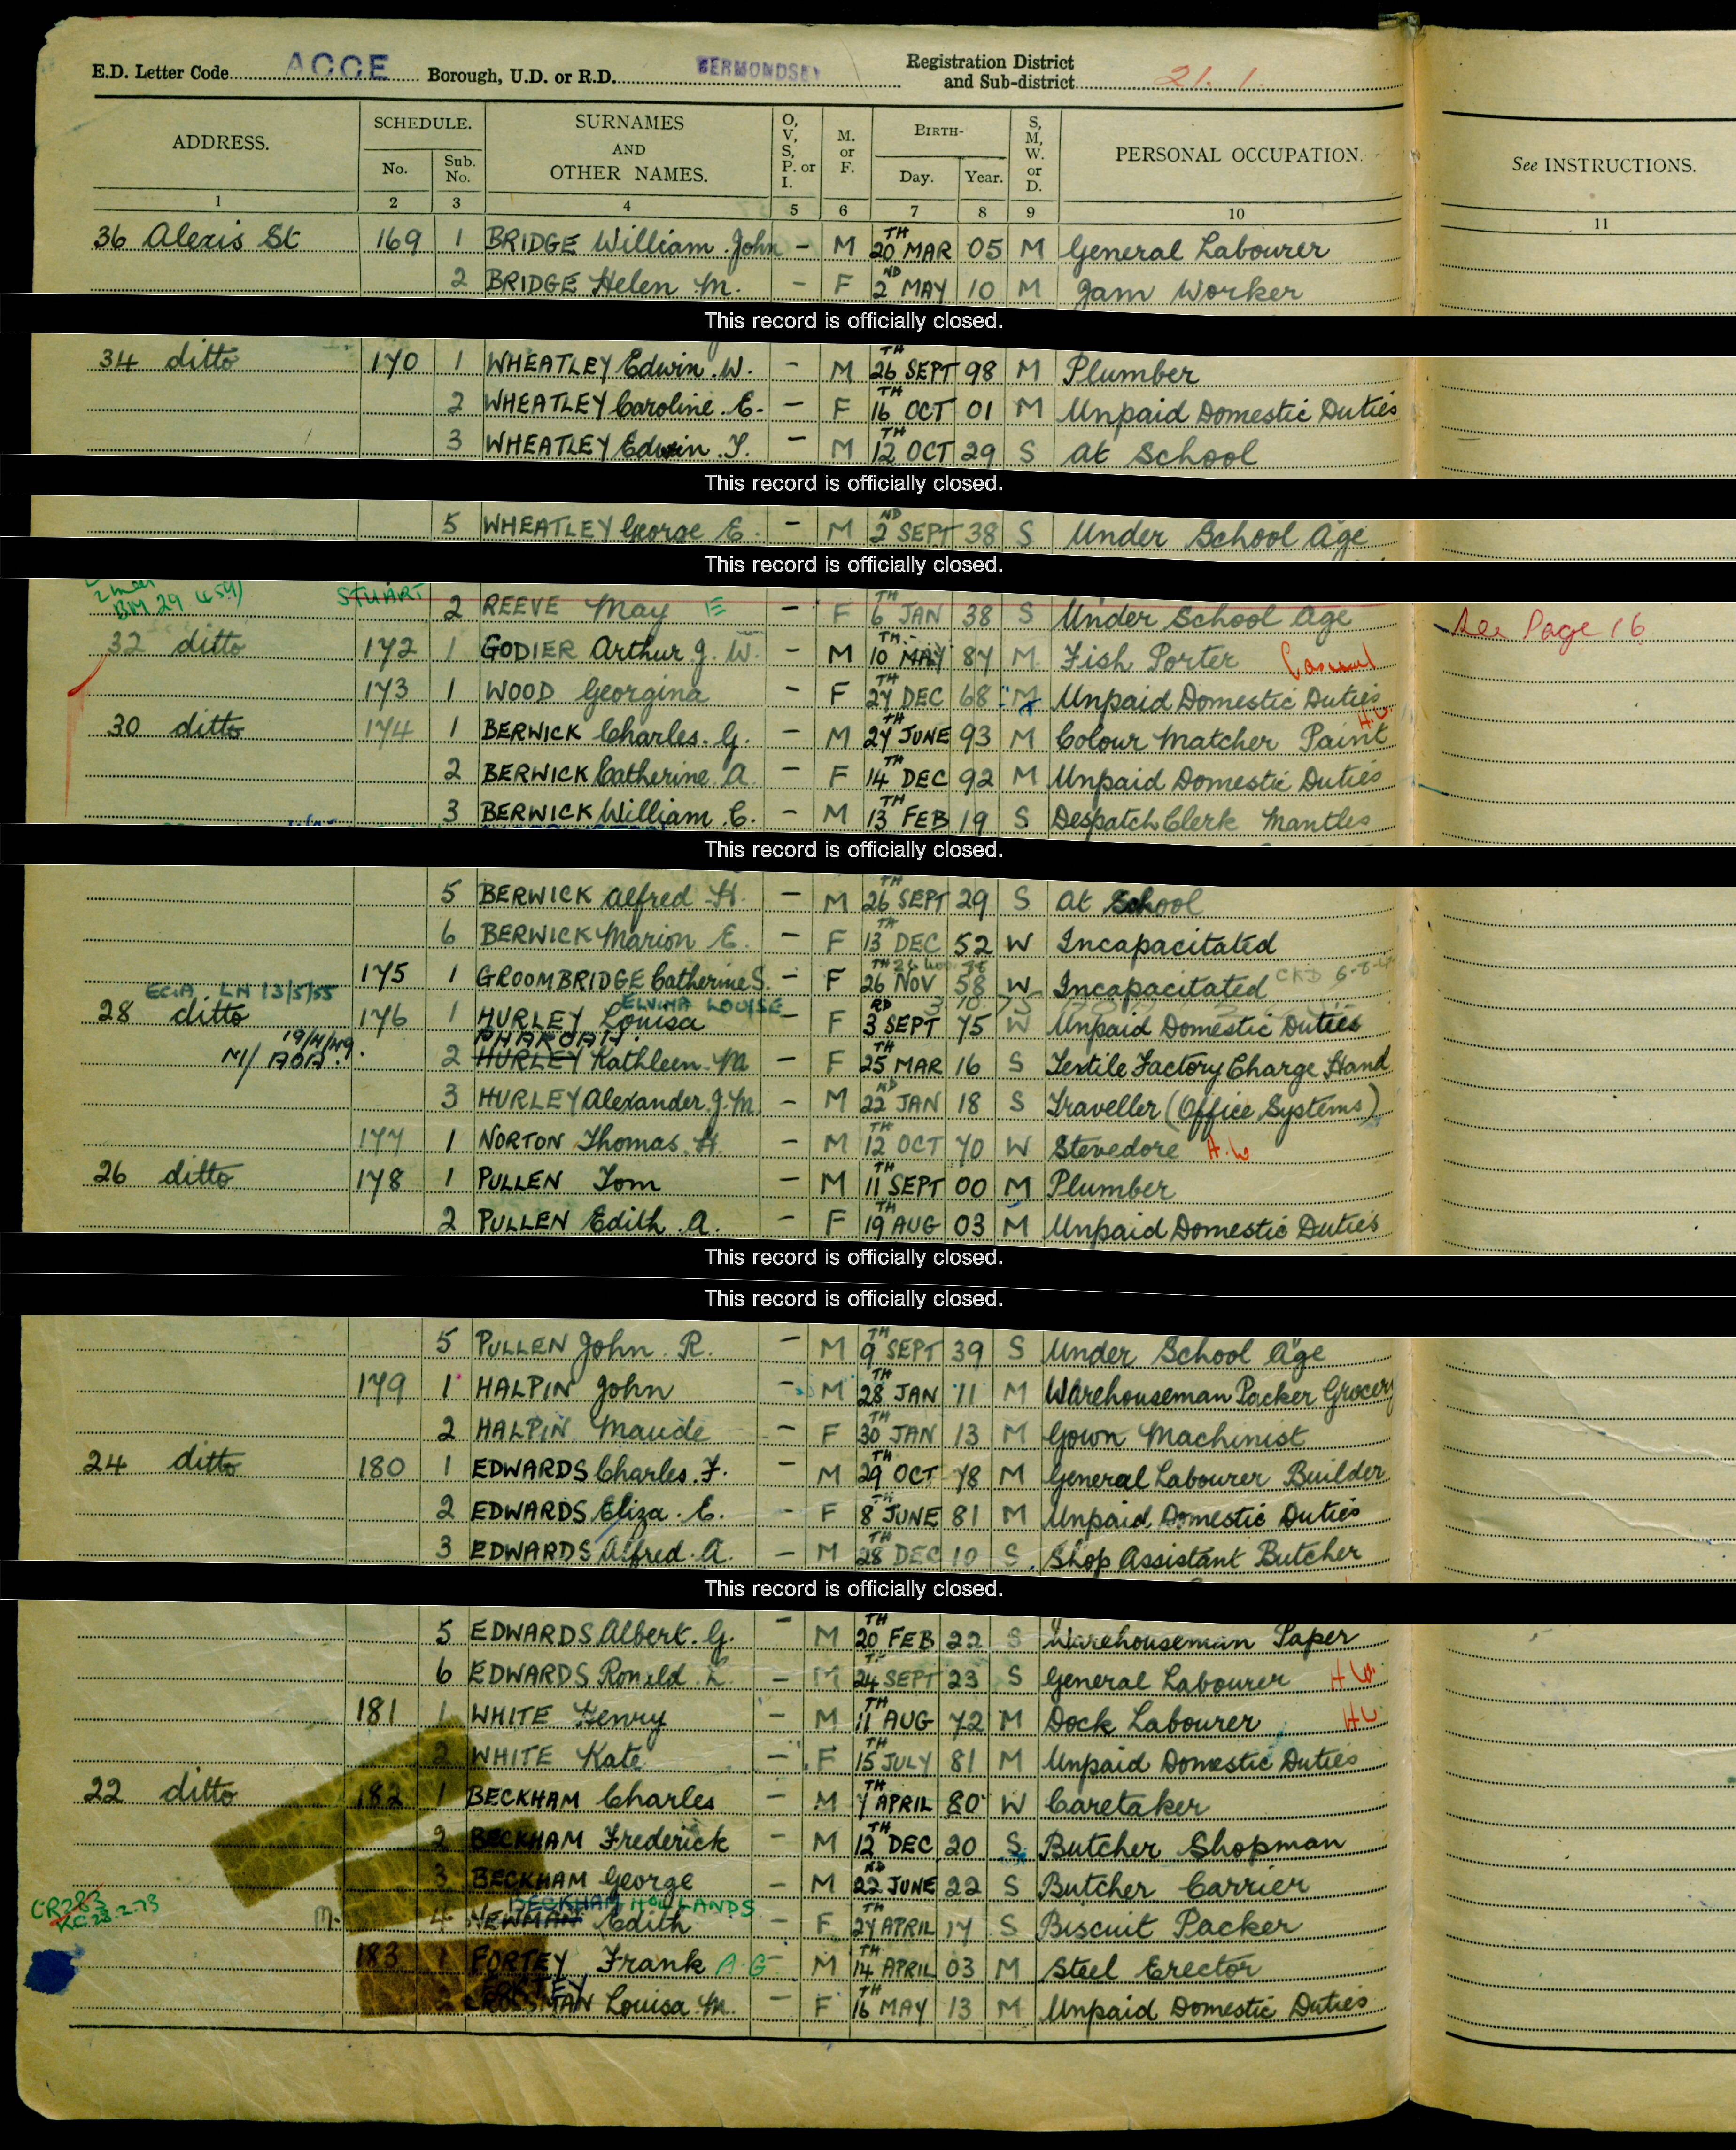 E.D. Letter Code ACCE Borough, U.D. or R.D. BERMONDSEY Registration District and Sub-district 21. 1.
ADDRESS. SCHEDULE. No. Sub. No. SURNAMES AND OTHER NAMES. O, V, S, P. or I. M. or F. BIRTH- Day. Year. S, M, W. or D. PERSONAL OCCUPATION. See INSTRUCTIONS.
1 2 3 4 5 6 7 8 9 10 11
36 Alexis St 169 1 BRIDGE William John - M 20TH MAR 05 M General Labourer
2 BRIDGE Helen M. - F 2ND MAY 10 M Jam Worker
This record is officially closed.
34 ditto 170 1 WHEATLEY Edwin. W. - M 26TH SEPT 98 M Plumber
2 WHEATLEY Caroline. E. - F 16TH OCT 01 M Unpaid Domestic Duties
3 WHEATLEY Edwin. T. - M 12TH OCT 29 S At School
This record is officially closed.
5 WHEATLEY George E. - M 2ND SEPT 38 S Under School Age
This record is officially closed.
STUART 2 REEVE May E - F 6TH JAN 38 S Under School Age See Page 16
32 ditto 172 1 GODIER Arthur J. W. - M 10TH MAY 87 M Fish Porter Casual
173 1 WOOD Georgina - F 27TH DEC 68 M Unpaid Domestic Duties
30 ditto 174 1 BERWICK Charles. G. - M 27TH JUNE 93 M Colour Matcher Paint H.W.
2 BERWICK Catherine. A. - F 14TH DEC 92 M Unpaid Domestic Duties
3 BERWICK William. C. - M 13TH FEB 19 S Despatch Clerk Mantles
This record is officially closed.
5 BERWICK Alfred H. - M 26TH SEPT 29 S At School
6 BERWICK Marion E. - F 13TH DEC 52 W Incapacitated
175 1 GROOMBRIDGE Catherine S. - F 26TH NOV 58 W Incapacitated
LN 13/5/55 ELVINA LOUISE
28 ditto 176 1 HURLEY Louisa - F 3RD SEPT 75 W Unpaid Domestic Duties
19/4/49. PHAROAH.
2 HURLEY Kathleen M - F 25TH MAR 16 S Textile Factory Charge Hand
3 HURLEY Alexander. J. M. - M 22ND JAN 18 S Traveller (Office Systems)
177 1 NORTON Thomas. H. - M 12TH OCT 70 W Stevedore H.W
26 ditto 178 1 PULLEN Tom - M 11TH SEPT 00 M Plumber
2 PULLEN Edith. A. - F 19TH AUG 03 M Unpaid Domestic Duties
This record is officially closed.
This record is officially closed.
5 PULLEN John. R. - M 9TH SEPT 39 S Under School Age
179 1 HALPIN John - M 28TH JAN 11 M Warehouseman Packer Grocery
2 HALPIN Maude - F 30TH JAN 13 M Gown Machinist
24 ditto 180 1 EDWARDS Charles. F. - M 29TH OCT 78 M General Labourer Builder
2 EDWARDS Eliza. E. - F 8TH JUNE 81 M Unpaid Domestic Duties
3 EDWARDS Alfred. A. - M 28TH DEC 10 S Shop Assistant Butcher
This record is officially closed.
5 EDWARDS Albert. G. - M 20TH FEB 22 S Warehouseman Paper
6 EDWARDS Ronald. - M 24TH SEPT 23 S General Labourer H W
181 1 WHITE Henry - M 11TH AUG 72 M Dock Labourer H W
2 WHITE Kate - F 15TH JULY 81 M Unpaid Domestic Duties
22 ditto 182 1 BECKHAM Charles - M 7TH APRIL 80 W Caretaker
2 BECKHAM Frederick - M 12TH DEC 20 S. Butcher Shopman
3 BECKHAM George - M 22ND JUNE 22 S Butcher Carrier
CR283 BECKHAM HOLLANDS
M. 4 NEWMAN Edith - F 27TH APRIL 17 S Biscuit Packer
183 1 FORTEY Frank A G - M 14TH APRIL 03 M Steel Erector
2 Louisa. M. - F 16TH MAY 13 M Unpaid Domestic Duties